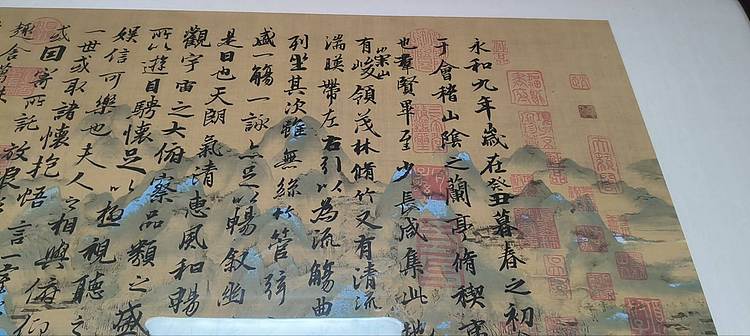 永和九年歲在癸丑暮春之初
于會稽山陰之蘭亭脩稧事
也羣賢畢至少長咸集此地
有崇山峻領茂林脩竹又有清流
湍暎帶左右引以為流觴曲
列坐其次雖無絲竹管弦
盛一觴一詠亦足以暢叙幽
是日也天朗氣清惠風和暢
觀宇宙之大俯察品類之盛
所以遊目騁懷足以極視聽之
娛信可樂也夫人之相與俯仰
一世或取諸懷抱悟言一室
或因寄所託放浪
趣舍萬殊